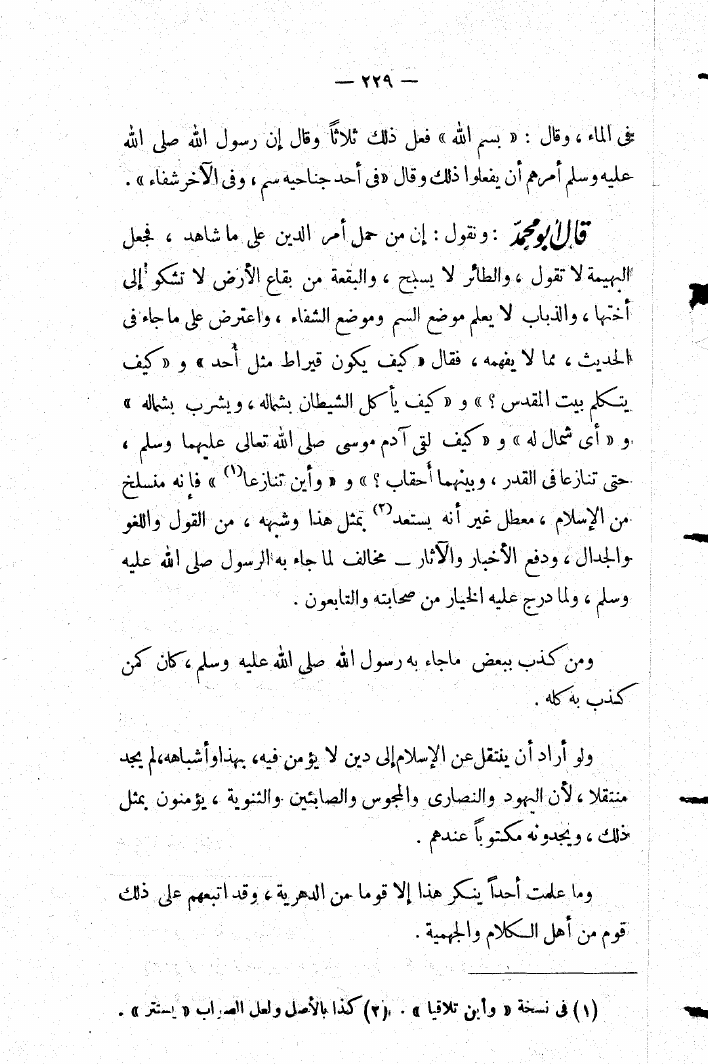 — ٢٢٩ —
فى الماء ، وقال : « بسم الله » فعل ذلك ثلاثاً وقال إن رسول الله صلى الله
عليه وسلم أمرهم أن يفعلوا ذلك وقال «فى أحد جناحيه سم ، وفى الآخر شفاء » .
قال أبو محمد : ونقول : إن من حمل أمر الدين على ما شاهد ، فجعل
البهيمة لا تقول ، والطائر لا يسبح ، والبقعة من بقاع الأرض لا تشكو إلى
أختها ، والذباب لا يعلم موضع السم وموضع الشفاء ، واعترض على ما جاء فى
الحديث ، مما لا يفهمه ، فقال « كيف يكون قيراط مثل أحد » و « كيف
يتكلم بيت المقدس ؟ » و « كيف يأكل الشيطان بشماله ، ويشرب بشماله »
و « أى شمال له » و « كيف لقى آدم موسى صلى الله تعالى عليهما وسلم ،
حتى تنازعا فى القدر ، وبينهما أحقاب ؟ » و « وأين تنازعا(١) » فإنه منسلخ
من الإسلام ، معطل غير أنه يستعد(٢) بمثل هذا وشبهه ، من القول واللغو
والجدال ، ودفع الأخبار والآثار — مخالف لما جاء به الرسول صلى الله عليه
وسلم ، ولما درج عليه الخيار من صحابته والتابعون .
ومن كذب ببعض ماجاء به رسول الله صلى الله عليه وسلم ، كان كمن
كذب به كله .
ولو أراد أن ينتقل عن الإسلام إلى دين لا يؤمن فيه، بهذا وأشباهه، لم يجد
منتقلا ، لأن اليهود والنصارى والمجوس والصابئين والثنوية ، يؤمنون بمثل
ذلك ، ويجدونه مكتوباً عندهم .
وما علمت أحداً ينكر هذا إلا قوما من الدهرية ، وقد اتبعهم على ذلك
قوم من أهل الكلام والجهمية .
(١) فى نسخة « وأين تلاقيا » . (٢) كذا بالأصل ولعل الصواب « يستتر » .